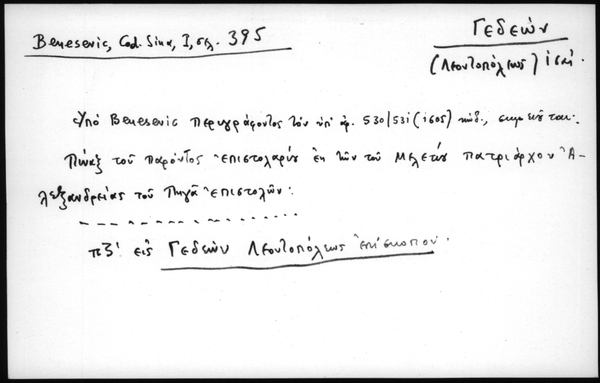 Benesevic, Cod. Sina, I, σελ. 395
ΓΕΔΕΩΝ
(Λεοντοπόλεως) ιςαί.
Ὑπό Benesevic περιγράφοντος τόν ὑπ' ἀρ. 530/531 (1605) κώδ., σημειοῦται:
Πίναξ τοῦ παρόντος ἐπιστολαρίου ἐκ τῶν τοῦ Μελετίου πατριάρχου Ἀ-
λεξανδρείας τοῦ Πηγᾶ ἐπιστολῶν:
πζ' εἰς Γεδεών Λεοντοπόλεως ἐπίσκοπον.